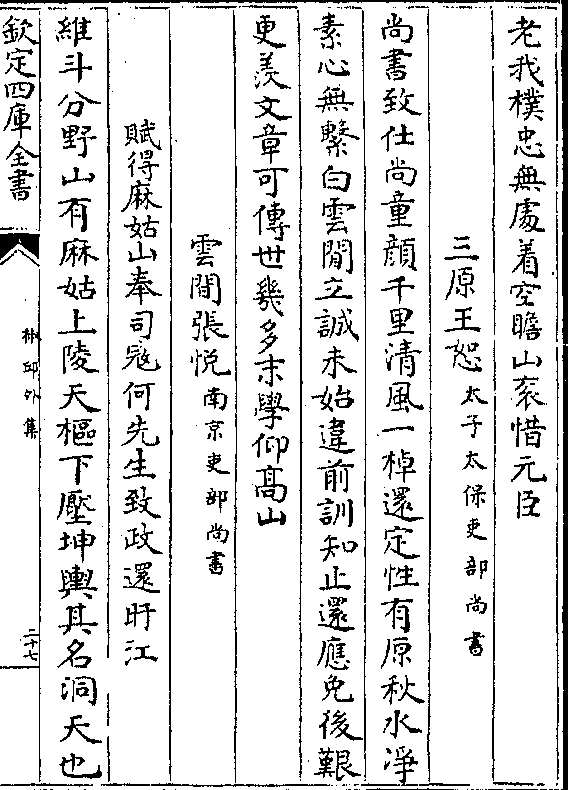 老我樸忠無處着空瞻山衮惜元臣
三原王恕太子太保吏部尚書
尚書致仕尚童顔千里清風一棹還定性有原秋水凈
素心無繫白雲閒立誠未始違前訓知止還應免後艱
更羡文章可傳世幾多末學仰髙山
雲間張悦南京吏部尚書
賦得麻姑山奉司寇何先生致政還盱江
維斗分野山有麻姑上陵天樞下壓坤輿其名洞天也
欽定四庫全書
椒邱外集
二十七